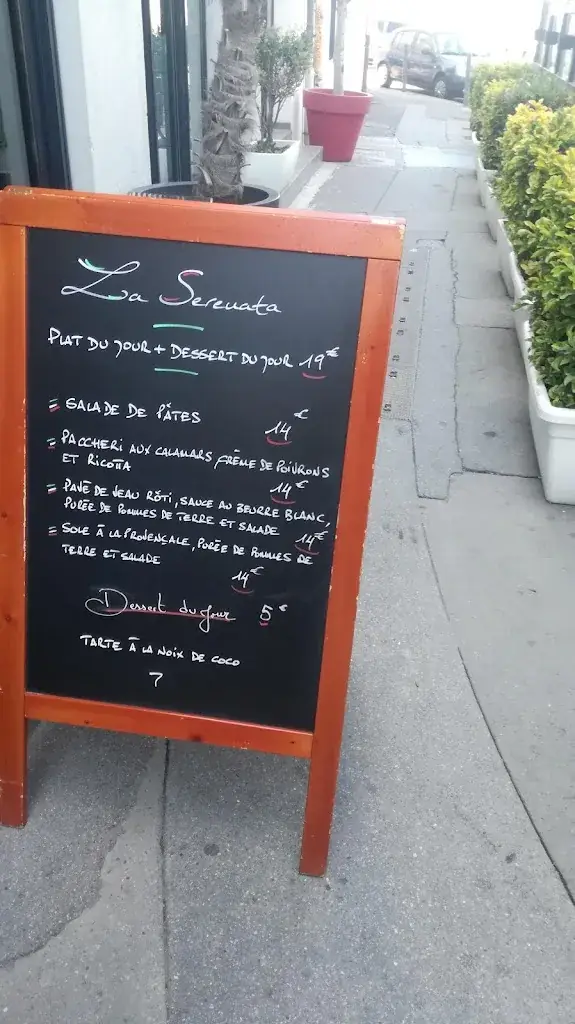 La Serenata
PLAT DU JOUR + DESSERT DU JOUR 19€
= SALADE DE PÂTES 14€
= PACCHERI AUX CALAMARS, CRÈME DE POIVRONS
ET RICOTTA 14€
= PAVÉ DE VEAU RÔTI, SAUCE AU BEURRE BLANC,
PURÉE DE POMMES DE TERRE ET SALADE 14€
= SOLE À LA PROVENÇALE, PURÉE DE POMMES DE
TERRE ET SALADE
14€
Dessert du jour 5€
TARTE À LA NOIX DE COCO
7